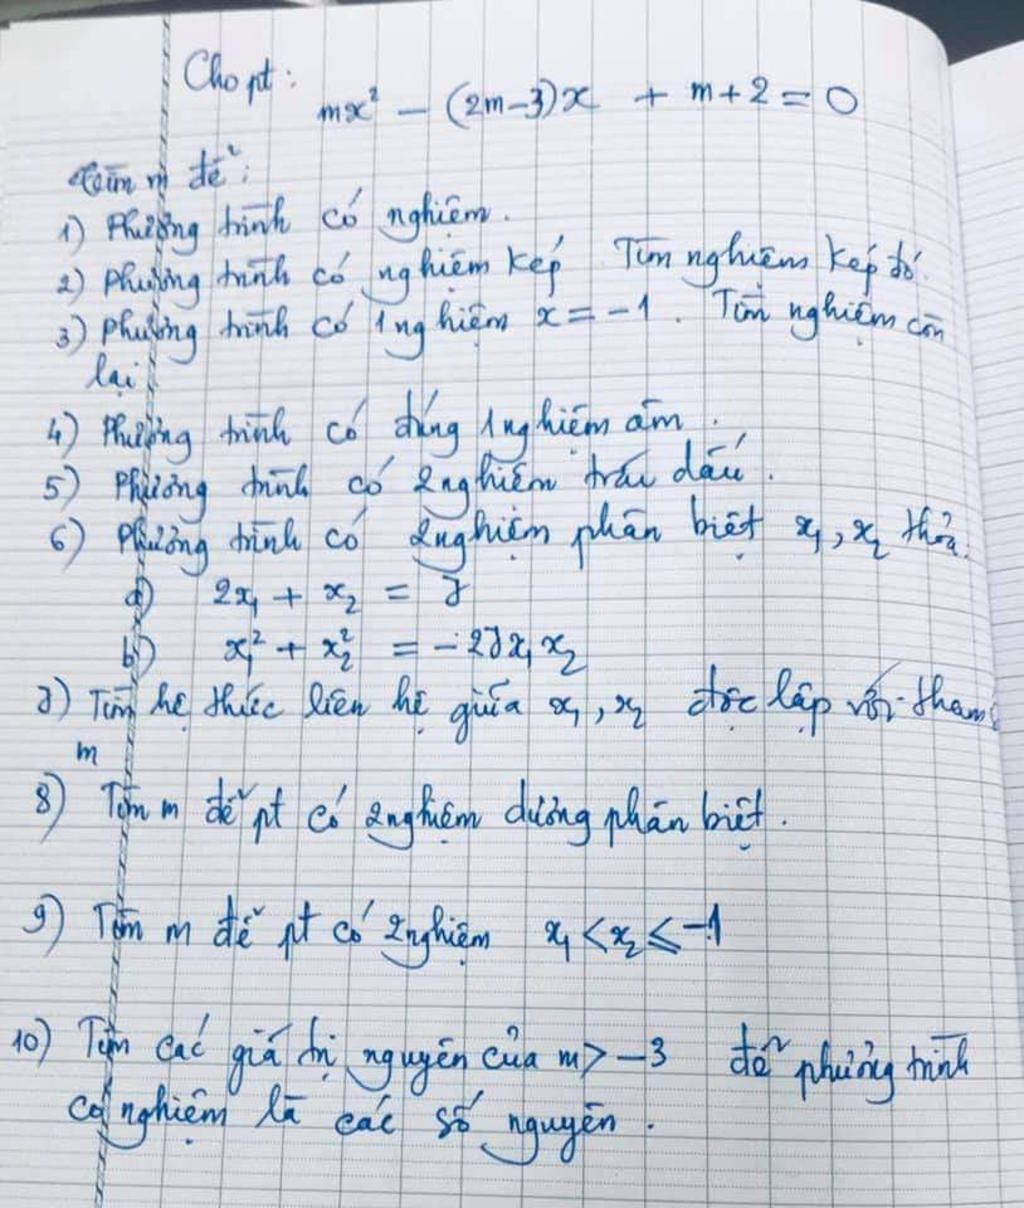 Cho pt:
mx² – (2m–3)x + m+2 = 0
Tìm m để:
1) Phương trình có nghiệm.
2) Phương trình có nghiệm kép Tìm nghiệm kép đó.
3) Phương trình có 1 nghiệm x = –1. Tìm nghiệm còn
lại
4) Phương trình có đúng 1 nghiệm âm.
5) Phương trình có 2 nghiệm trái dấu.
6) Phương trình có 2 nghiệm phân biệt x₁, x₂ thỏa:
a) 2x₁ + x₂ = 7
b) x₁² + x₂² = –27x₁x₂
7) Tìm hệ thức liên hệ giữa x₁, x₂ độc lập với tham
m
8) Tìm m để pt có 2 nghiệm dương phân biệt.
9) Tìm m để pt có 2 nghiệm x₁ < x₂ ≤ –1
10) Tìm các giá trị nguyên của m > –3 để phương trình
có nghiệm là các số nguyên.